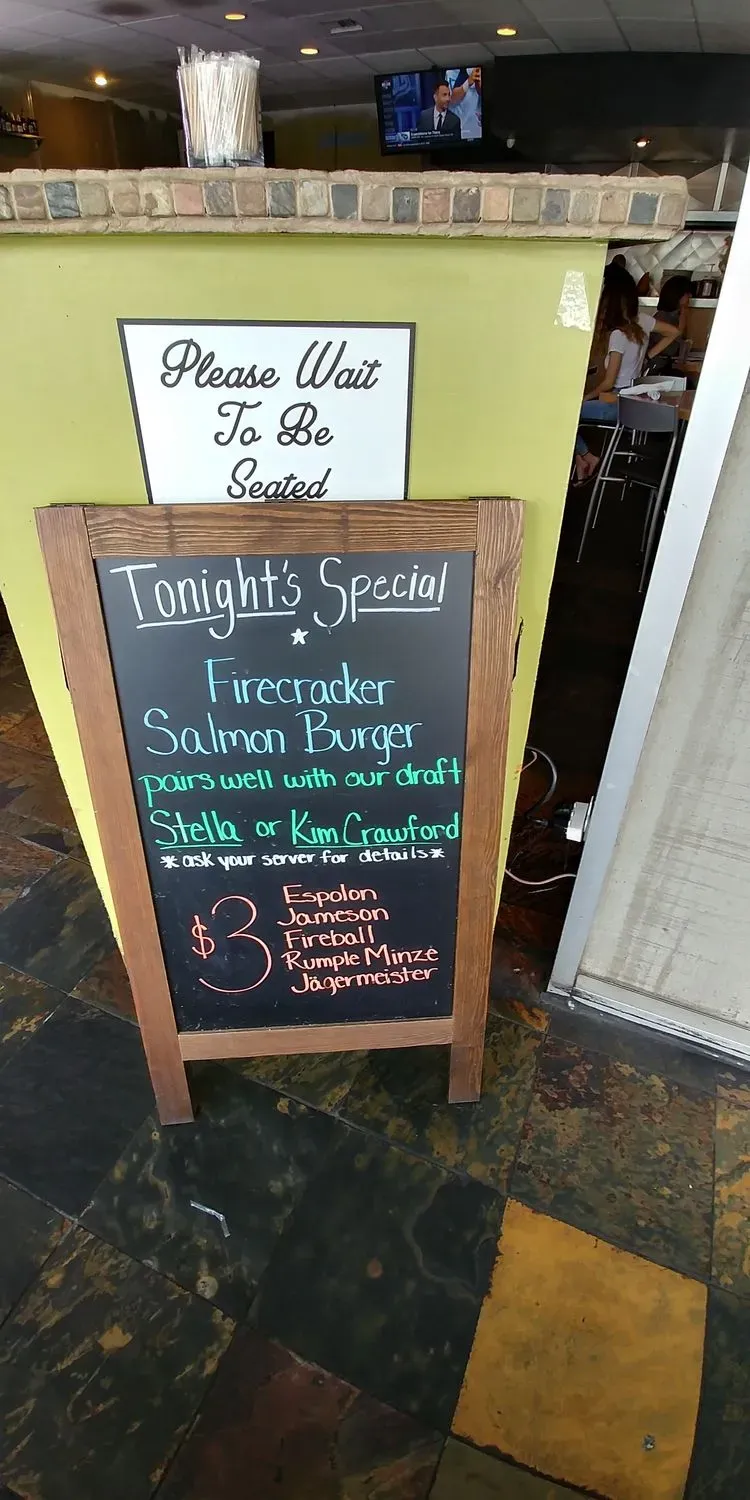 Please Wait
To Be
Seated
Tonight's Special
Firecracker
Salmon Burger
pairs well with our draft
Stella or Kim Crawford
*ask your server for details*
$3
Espolon
Jameson
Fireball
Rumple Minze
Jägermeister